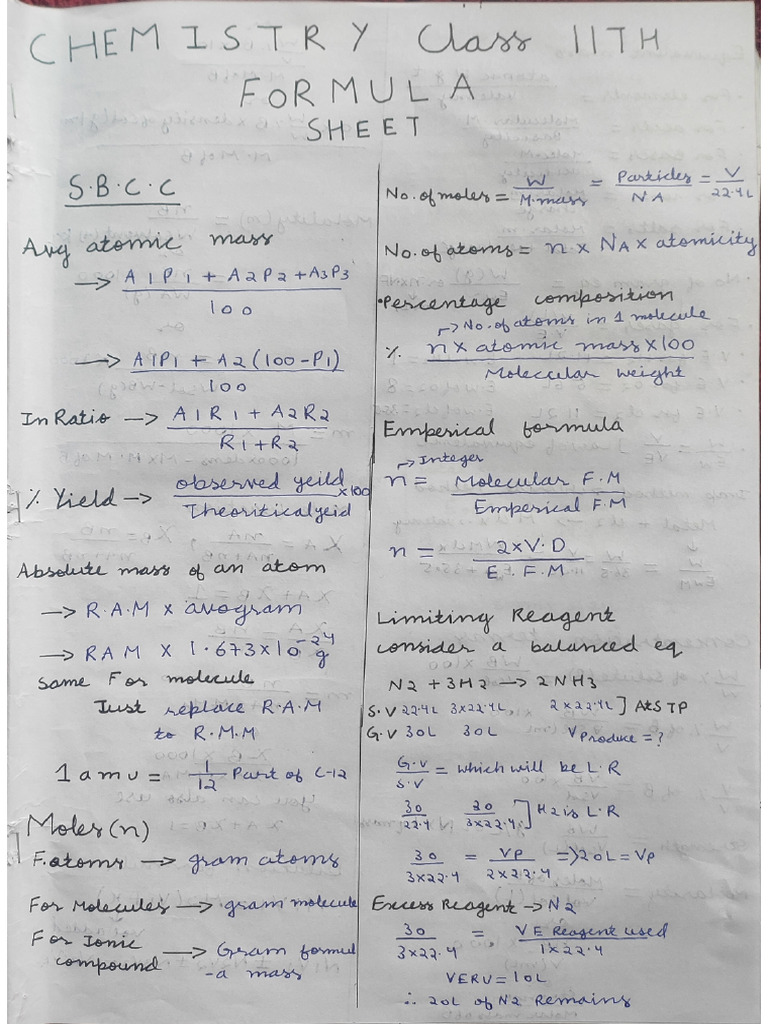 CHEMISTRY Class 11TH
FORMULA
SHEET
S.B.C.C
Avg atomic mass
→ A1P1 + A2P2 + A3P3
100
→ A1P1 + A2(100-P1)
100
In Ratio → A1R1 + A2R2
R1+R2
% Yield → observed yeild x100
Theoriticalyeid
Absolute mass of an atom
→ R.A.M x avogram
→ RAM x 1.673x10^-24 g
Same For molecule
Just replace R.A.M
to R.M.M
1 amu = 1/12 Part of C-12
Moles(n)
F.atoms → gram atoms
For Molecules → gram molecule
For Ionic
compound → Gram formul
-a mass
No. of moles = W/M.mass = Particles/NA = V/22.4L
No. of atoms = n x NA x atomicity
•Percentage composition
→ No. of atoms in 1 molecule
% n x atomic mass x100
Moleccular weight
Emperical formula
→ Integer
n = Molecular F.M
Emperical F.M
n = 2xV.D
E.F.M
Limiting Reagent
consider a balanced eq
N2 + 3H2 → 2NH3
S.V 22.4L 3x22.4L 2x22.4L ] At STP
G.V 30L 30L V Produce = ?
G.V/S.V = which will be L.R
30/22.4 20/3x22.4 ] H2 is L.R
30/3x22.4 = VP/2x22.4 => 20L = VP
Excess Reagent → N2
30/3x22.4 = V E Reagent used/1x22.4
VERU = 10L
∴ 20L of N2 Remains